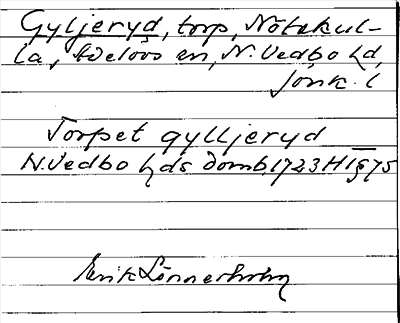 Gyljeryd, torp, Nötekul-
la, Adelövs sn, N. Vedbo hd,
Jönk. l
Torpet gylljeryd
N. Vedbo hds domb. 1723 H1 § 75
Erik Lönnerholm